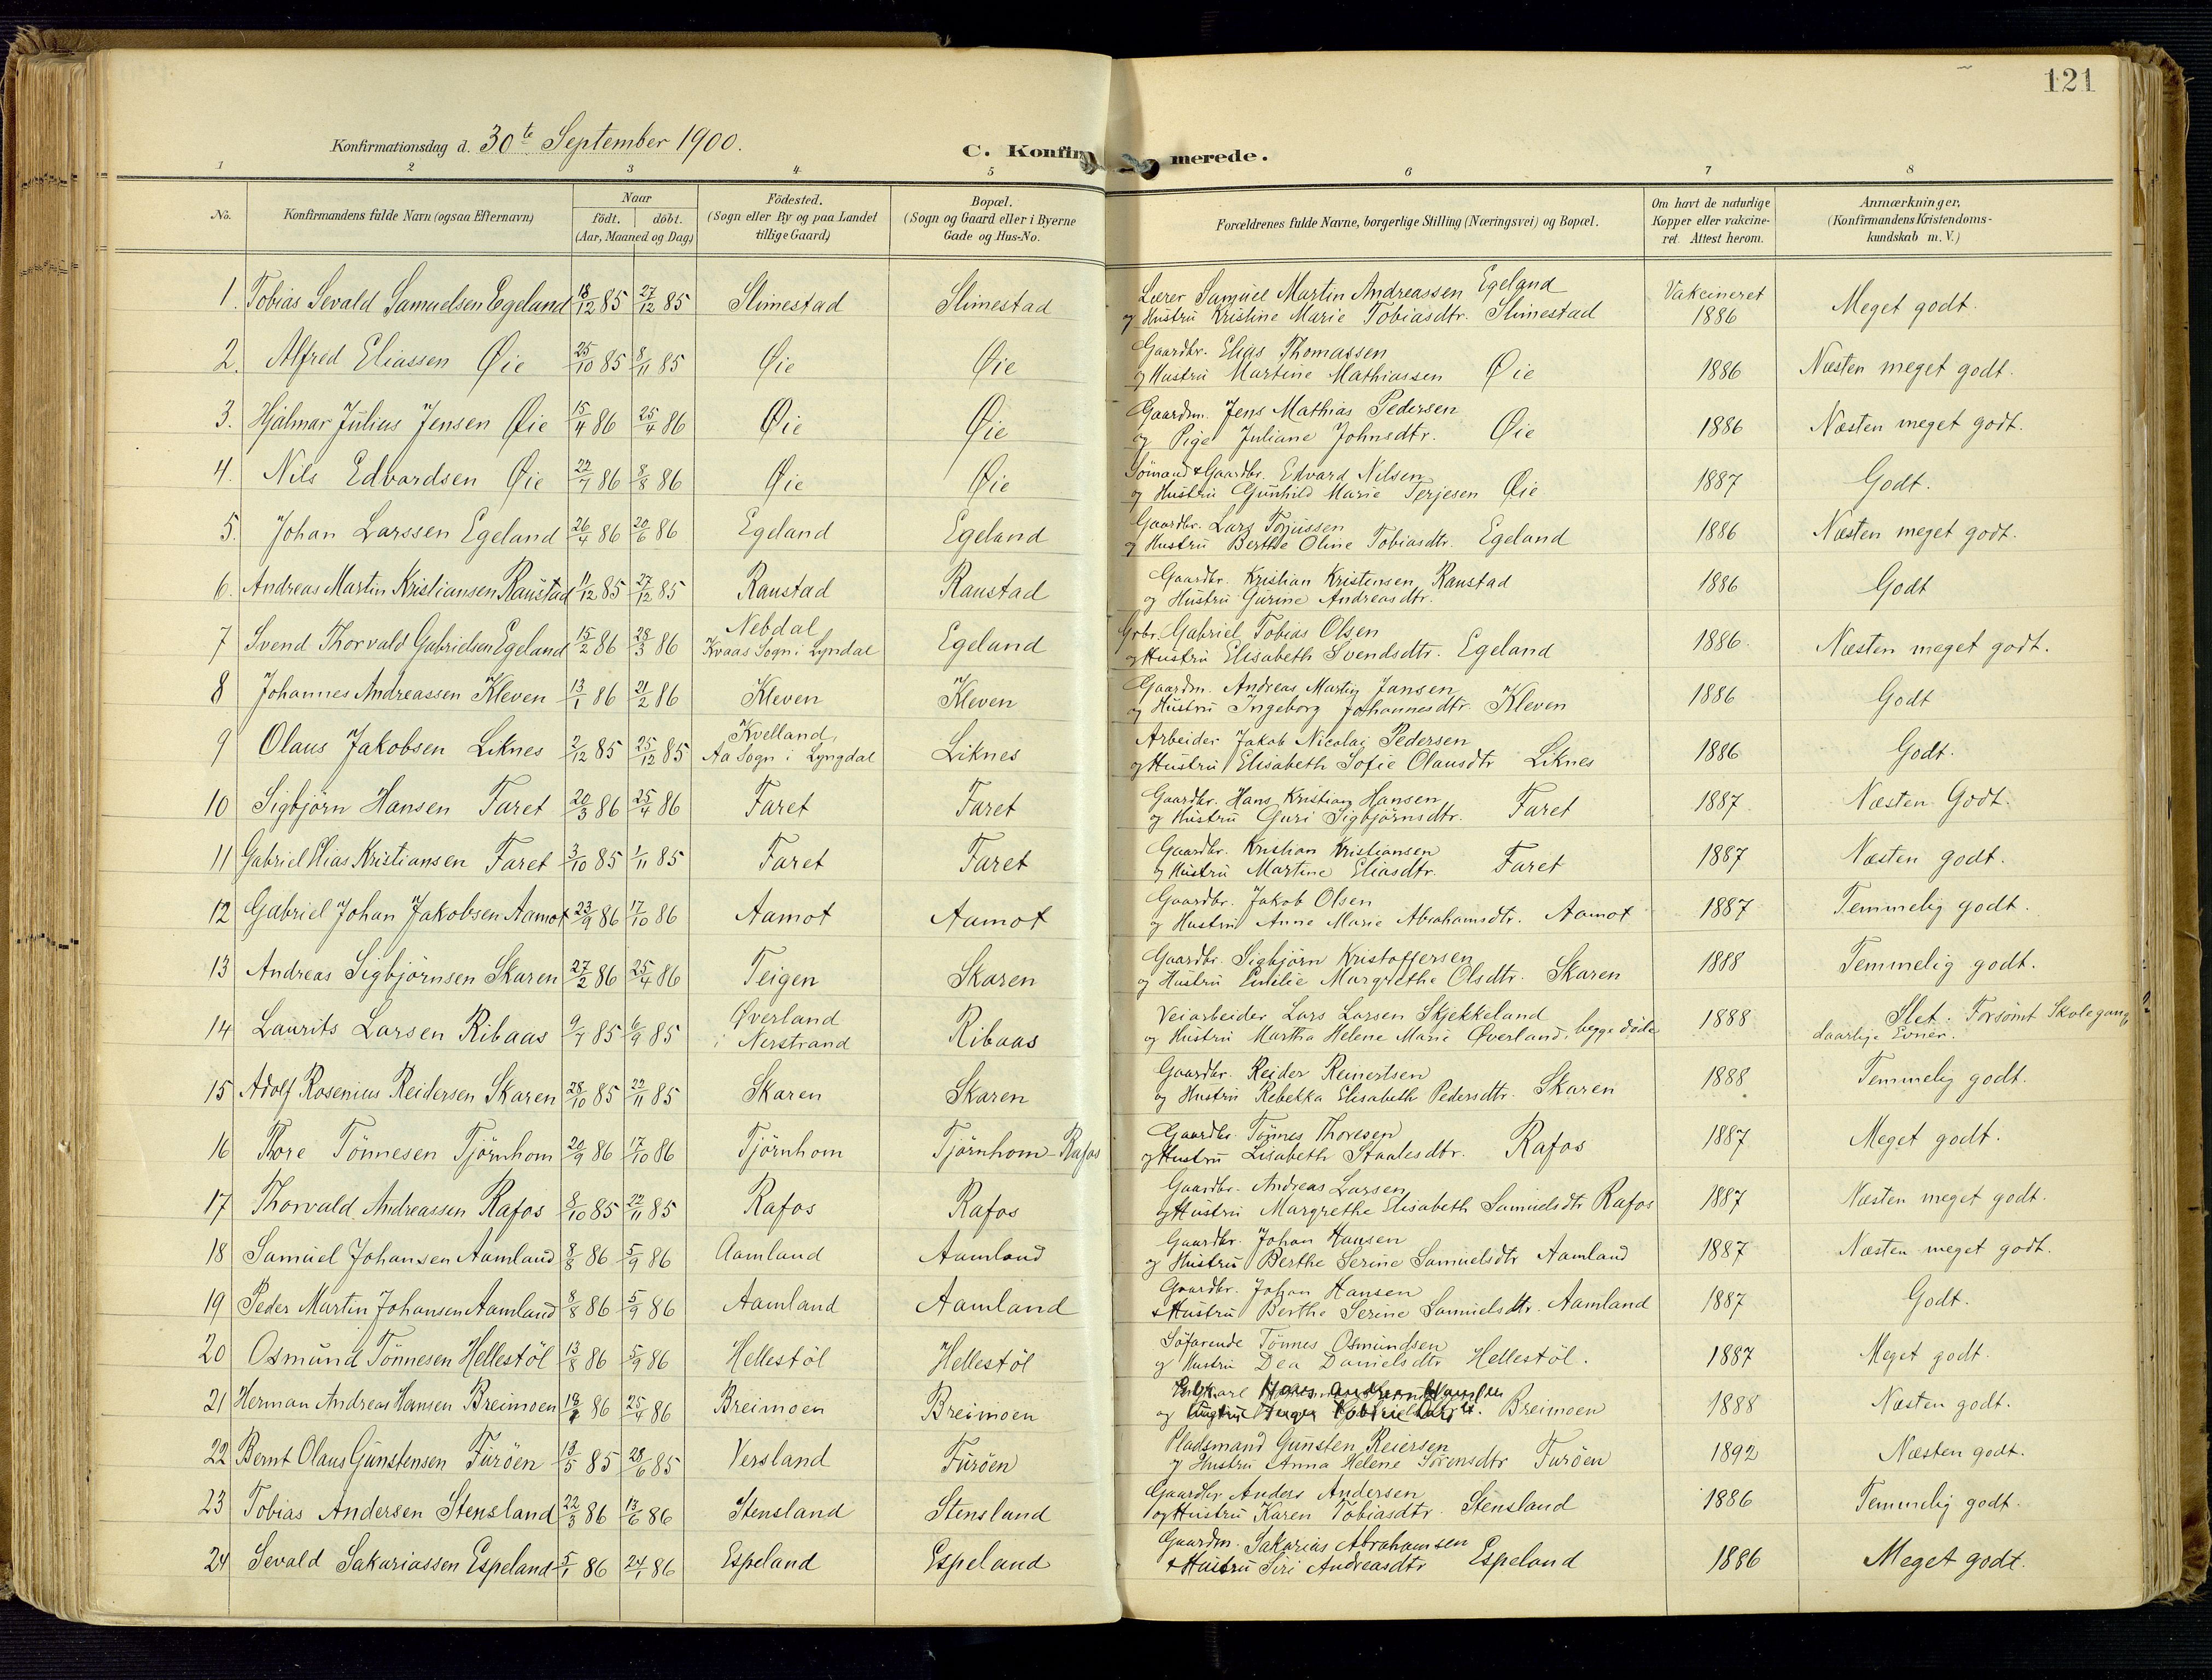 121
Konfirmationsdag d. 30te September 1900.
C. Konfirmerede.
1 2 3 4 5 6 7 8
No. Konfirmandens fulde Navn (ogsaa Efternavn) Naar födt. döbt. (Aar, Maaned og Dag) Födested. (Sogn eller By og paa Landet tillige Gaard) Bopæl. (Sogn og Gaard eller i Byerne Gade og Hus-No. Forældrenes fulde Navne, borgerlige Stilling (Næringsvei) og Bopæl. Om havt de naturlige Kopper eller vakcineret. Attest herom. Anmærkninger, (Konfirmandens Kristendomskundskab m. V.)
1. Tobias Sevald Samuelsen Egeland 18/12 85 27/12 85 Slimestad Slimestad Lærer Samuel Martin Andreassen Egeland og Hustru Kristine Marie Tobiasdtr. Slimestad Vakcineret 1886 Meget godt.
2. Alfred Eliassen Øie 25/10 85 8/11 85 Øie Øie Gaardbr. Elias Thomassen og Hustru Martine Mathiassen Øie 1886 Næsten meget godt.
3. Hjalmar Julius Jensen Øie 15/4 86 25/4 86 Øie Øie Gaardm. Jens Mathias Pedersen og Pige Juliane Johnsdtr. Øie 1886 Næsten meget godt.
4. Nils Edvardsen Øie 22/7 86 8/8 86 Øie Øie Sömand & Gaardbr. Edvard Nilsen og Hustru Gunhild Marie Terjesen Øie 1887 Godt.
5. Johan Larssen Egeland 26/4 86 20/6 86 Egeland Egeland Gaardbr. Lars Tørjussen og Hustru Berthe Oline Tobiasdtr. Egeland 1886 Næsten meget godt.
6. Andreas Martin Kristiansen Raustad 11/12 85 27/12 85 Raustad Raustad Gaardbr. Kristian Kristensen Raustad og Hustru Gurine Andreasdtr. 1886 Godt
7 Svend Thorvald Gabrielsen Egeland 15/2 86 28/3 86 Nebdal Kvaas Sogn i Lyndal Egeland Grbr. Gabriel Tobias Olsen og Hustru Elisabeth Svendsdtr. Egeland 1886. Næsten meget godt.
8 Johannes Andreassen Kleven 13/1 86 21/2 86 Kleven Kleven Gaardm. Andreas Martin Jansen og Hustru Ingeborg Johannesdtr. Kleven 1886 Godt
9 Olaus Jakobsen Liknes 2/12 85 25/12 85 Kvelland, Aa Sogn i Lyngdal Liknes Arbeider Jakob Nicolai Pedersen og Hustru Elisabeth Sofie Olausdtr Liknes 1886 Godt.
10 Sigbjörn Hansen Faret 20/3 86 25/4 86 Faret Faret Gaardbr. Hans Kristian Hansen og Hustru Guri Sigbjörnsdtr. Faret 1887 Næsten Godt.
11 Gabriel Elias Kristiansen Faret 3/10 85 1/11 85 Faret Faret Gaardbr. Kristian Kristiansen og Hustru Martine Eliasdtr. Faret 1887 Næsten godt.
12 Gabriel Johan Jakobsen Aamot 23/9 86 17/10 86 Aamot Aamot Gaardbr. Jakob Olsen og Hustru Anne Marie Abrahamsdtr. Aamot 1887 Temmelig godt.
13 Andreas Sigbjörnsen Skaren 27/2 86 25/4 86 Teigen Skaren Gaardbr. Sigbjörn Kristoffersen og Hustru Emilie Margrethe Olsdtr. Skaren 1888 Temmelig godt.
14 Laurits Larsen Ribaas 9/7 85 6/9 85 Øverland i Nerstrand Ribaas Veiarbeider Lars Larsen Skjekkeland og Hustru Martha Helene Marie Øverland, begge døde 1888 Slet. Forsömt Skolegang daarlige Evner.
15 Adolf Rosenius Reidersen Skaren 28/10 85 22/11 85 Skaren Skaren Gaardbr. Reider Reinertsen og Hustru Rebekka Elisabeth Pedersdtr. Skaren 1888 Temmelig godt.
16 Thore Tönnesen Tjörnhom 20/9 86 17/10 86 Tjörnhom Tjörnhom-Rafos Gaardbr. Tönnes Thoresen og Hustru Lisabeth Staalesdtr. Rafos 1887 Meget godt.
17 Thorvald Andreassen Rafos 8/10 85 22/11 85 Rafos Rafos Gaardbr. Andreas Larsen og Hustru Margrethe Elisabeth Samuelsdtr Rafos 1887 Næsten meget godt.
18 Samuel Johansen Aamland 8/8 86 5/9 86 Aamland Aamland Gaardbr. Johan Hansen og Hustru Berthe Serine Samuelsdtr Aamland 1887 Næsten meget godt.
19 Peder Martin Johansen Aamland 8/8 86 5/9 86 Aamland Aamland Gaardbr. Johan Hansen & Hustru Berthe Serine Samuelsdtr. Aamland 1887 Godt.
20 Osmund Tönnesen Hellestöl 13/8 86 5/9 86 Hellestöl Hellestöl Söfarende Tönnes Osmundsen og Hustru Dea Danielsdtr Hellestöl. 1887 Meget godt.
21 Herman Andreas Hansen Breimoen 86 25/4 86 Breimoen Breimoen og Breimoen 1888 Næsten godt.
22 Bernt Olaus Gunstensen Furöen 13/5 85 28/6 85 Versland Furöen Pladsmand Gunsten Reiersen og Hustru Anna Helene Sörensdtr Furöen 1892 Næsten godt.
23 Tobias Andersen Stensland 22/3 86 13/6 86 Stensland Stensland Gaardbr Anders Andersen og Hustru Karen Tobiasdtr. Stensland 1886 Temmelig godt.
24 Sevald Sakariassen Espeland 5/1 86 24/1 86 Espeland Espeland Gaardm. Sakarias Abrahamsen & Hustru Siri Andreasdtr Espeland 1886 Meget godt.